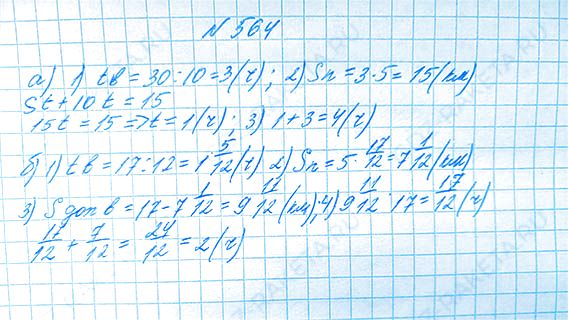 №564
а) 1) tв = 30:10=3(ч); 2) Sп = 3·5= 15(км)
5t+10t = 15
15t = 15 => t = 1(ч); 3) 1+3=4(ч)
б) 1) tв = 17:12 = 1 5/12(ч) 2) Sп = 5· 17/12 = 7 1/12(км)
3) S доп в = 17-7 1/12 = 9 11/12(км); 4) 9 11/12 : 17 = 17/12(ч)
17/12 + 7/12 = 24/12 = 2(ч)